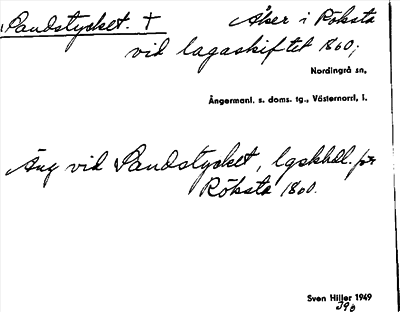 Sandstycket. † Åker i Röksta
vid lagaskiftet 1860;
Nordingrå sn,
Ångermanl. s. doms. tg., Västernorrl. l.
Äng vid Sandstycket, lgskhdl. för
Röksta 1860.
Sven Hiller 1949